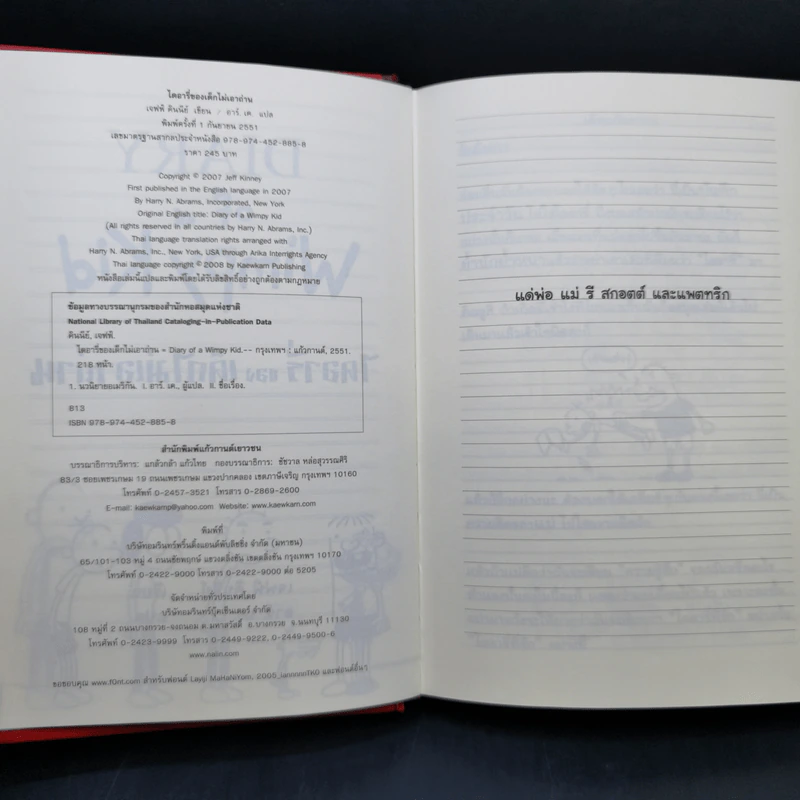 ไดอารี่ของเด็กไม่เอาถ่าน
เจฟฟ์ คินนีย์ เขียน / อาร์. เค. แปล
พิมพ์ครั้งที่ 1 กันยายน 2551
เลขมาตรฐานสากลประจำหนังสือ 978-974-452-885-8
ราคา 245 บาท
Copyright © 2007 Jeff Kinney
First published in the English language in 2007
By Harry N. Abrams, Incorporated, New York
Original English title: Diary of a Wimpy Kid
(All rights reserved in all countries by Harry N. Abrams, Inc.)
Thai language translation rights arranged with
Harry N. Abrams, Inc., New York, USA through Arika Interrights Agency
Thai language copyright © 2008 by Kaewkarn Publishing
หนังสือเล่มนี้แปลและพิมพ์โดยได้รับลิขสิทธิ์อย่างถูกต้องตามกฎหมาย
ข้อมูลทางบรรณานุกรมของสำนักหอสมุดแห่งชาติ
National Library of Thailand Cataloging-in-Publication Data
คินนีย์, เจฟฟ์.
ไดอารี่ของเด็กไม่เอาถ่าน = Diary of a Wimpy Kid.-- กรุงเทพฯ : แก้วกานต์, 2551.
218 หน้า.
1. นวนิยายอเมริกัน. I. อาร์. เค., ผู้แปล. II. ชื่อเรื่อง.
813
ISBN 978-974-452-885-8
สำนักพิมพ์แก้วกานต์เยาวชน
บรรณาธิการบริหาร: แกล้วกล้า แก้วไทย กองบรรณาธิการ: ชัชวาล หล่อสุวรรณศิริ
83/3 ซอยเพชรเกษม 19 ถนนเพชรเกษม แขวงปากคลอง เขตภาษีเจริญ กรุงเทพฯ 10160
โทรศัพท์ 0-2457-3521 โทรสาร 0-2869-2600
E-mail: kaewkarnp@yahoo.com Website: www.kaewkarn.com
พิมพ์ที่
บริษัทอมรินทร์พริ้นติ้งแอนด์พับลิชชิ่ง จำกัด (มหาชน)
65/101-103 หมู่ 4 ถนนชัยพฤกษ์ แขวงตลิ่งชัน เขตตลิ่งชัน กรุงเทพฯ 10170
โทรศัพท์ 0-2422-9000 โทรสาร 0-2422-9000 ต่อ 5205
จัดจำหน่ายทั่วประเทศโดย
บริษัทอมรินทร์บุ๊คเซ็นเตอร์ จำกัด
108 หมู่ที่ 2 ถนนบางกรวย-จงถนอม ต.มหาสวัสดิ์ อ.บางกรวย จ.นนทบุรี 11130
โทรศัพท์ 0-2423-9999 โทรสาร 0-2449-9222, 0-2449-9500-6
www.naiin.com
ขอขอบคุณ www.f0nt.com สำหรับฟอนต์ Layiji MaHaNiYom, 2005_iannnnnTKO และฟอนต์อื่นๆ
แด่พ่อ แม่ รี สกอตต์ และแพตทริก